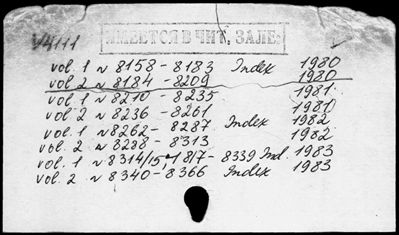 V4111
ИМЕЕТСЯ В ЧИТ. ЗАЛЕ
vol. 1 N 8158 - 8183 Index 1980
vol 2 N 8184 - 8209 1980
vol 1 N 8210 - 8235 1981
vol 2 N 8236 - 8261 1981
vol. 1 N 8262 - 8287 Index 1982
vol. 2 N 8288 - 8313 1982
vol. 1 N 8314/15, 1817 - 8339 Ind. 1983
vol. 2 N 8340 - 8366 Index 1983